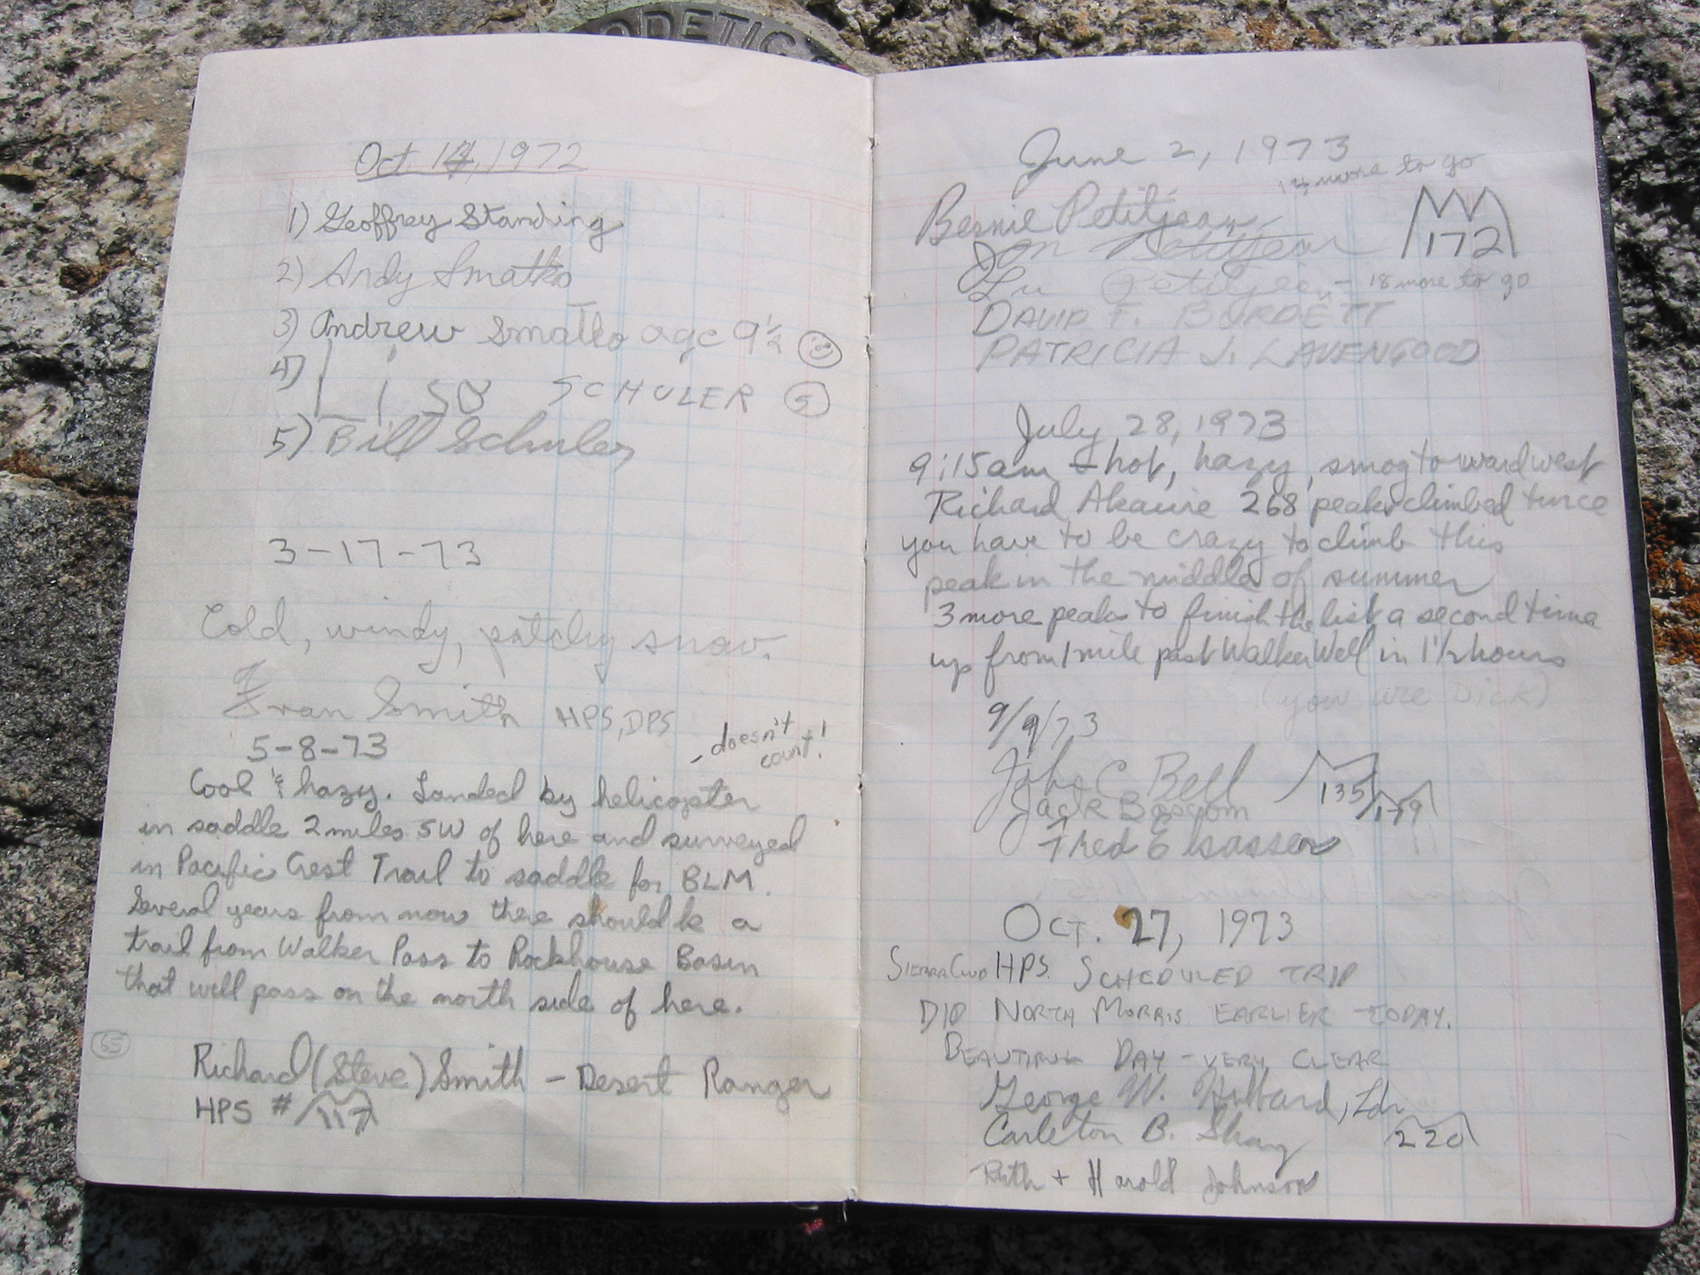 ODETIC
Oct 14, 1972
1) Geoffrey Standing
2) Andy Smatko
3) Andrew Smatko age 9 1/2
4) SCHULER 5
5) Bill Schuler
3-17-73
Cold, windy, patchy snow.
Fran Smith HPS, DPS
5-8-73
- doesn't count!
Cool & hazy. Landed by helicopter
in saddle 2 miles SW of here and surveyed
in Pacific Crest Trail to saddle for BLM.
Several years from now there should be a
trail from Walker Pass to Rockhouse Basin
that will pass on the north side of here.
65
Richard (Steve) Smith - Desert Ranger
HPS # 117
June 2, 1973
more to go
Bernie Petitjean
172
Petitjean
Lu Petitjean - 18 more to go
DAVID F. BURDETT
PATRICIA J. LAVENGOOD
July 28, 1973
9:15am - hot, hazy, smog toward west
Richard 268 peaks climbed twice
you have to be crazy to climb this
peak in the middle of summer
3 more peaks to finish the list a second time
up from 1 mile past Walker Well in 1 1/2 hours
(you are Dick)
9/9/73
John C Bell 135
Jack Bascom 179
Fred E
OCT. 27, 1973
SIERRA CLUB HPS. SCHEDULED TRIP
DID NORTH MORRIS EARLIER TODAY.
BEAUTIFUL DAY - VERY CLEAR
George W. Hubbard, Ldr
Carleton B. Shay 220
Ruth + Harold Johnson